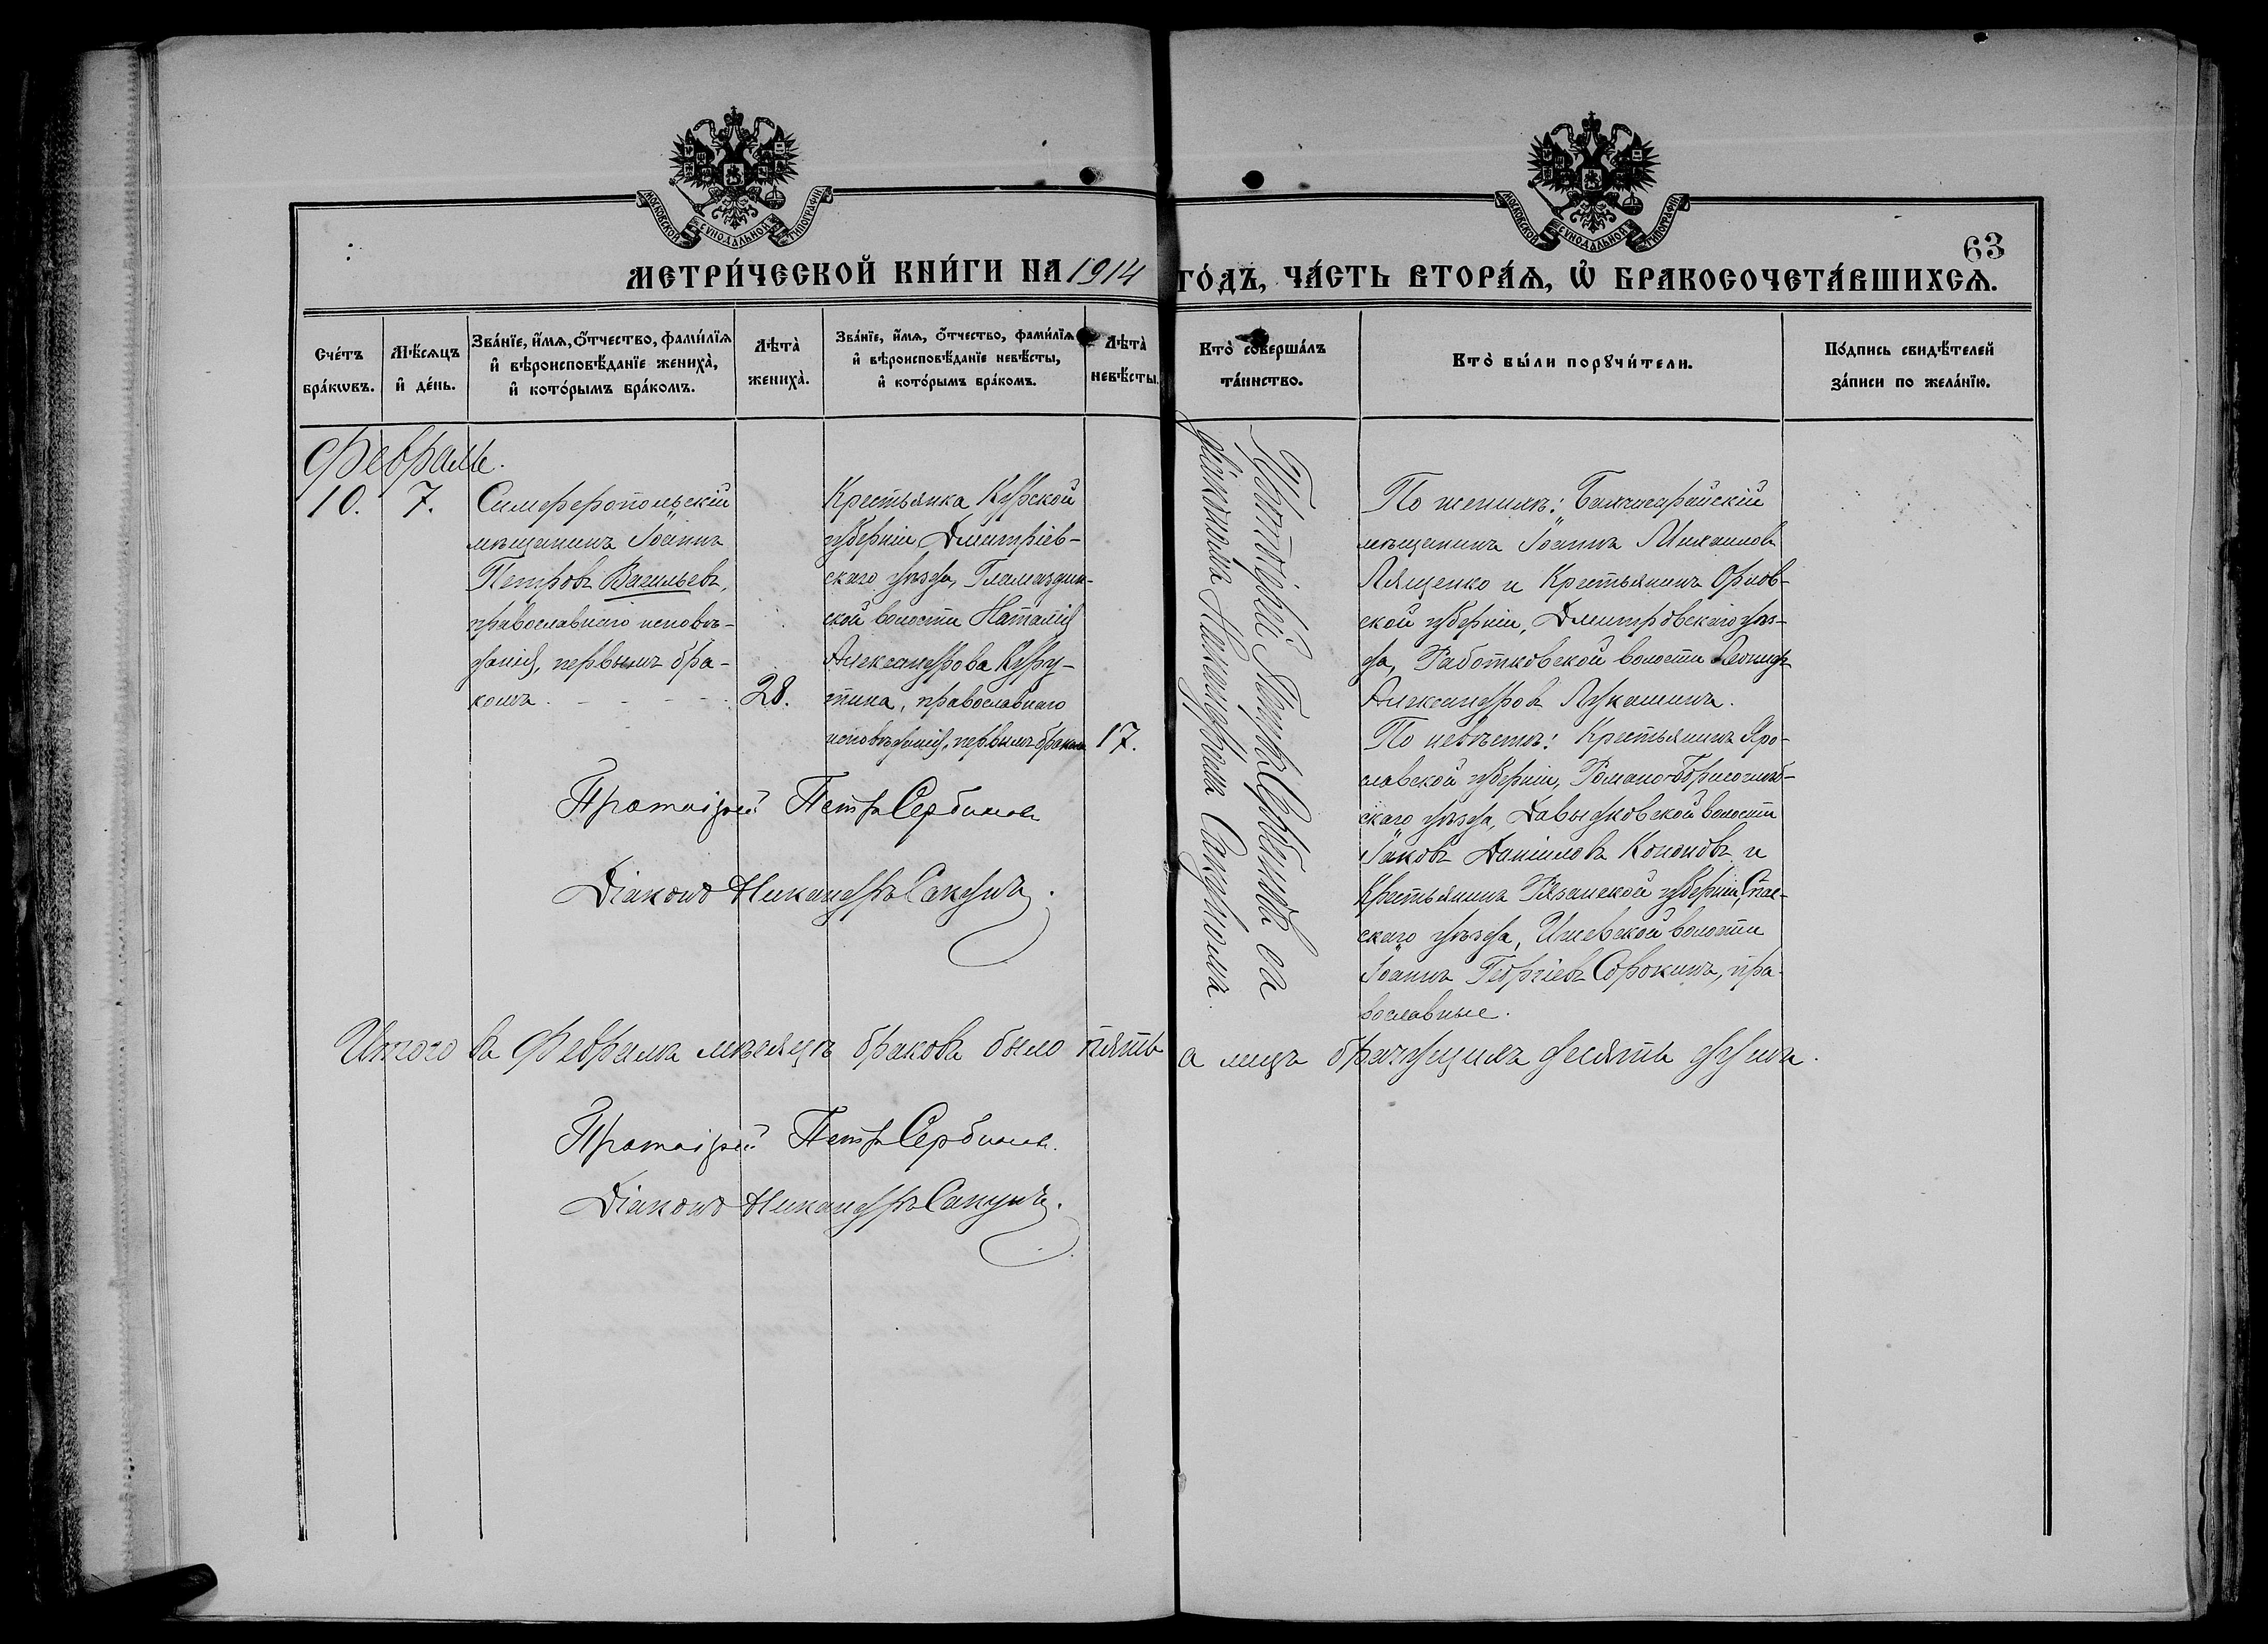 МОСКОВСКОЙ СУНОДАЛЬНОЙ ТИПОГРАФІИ
МОСКОВСКОЙ СУНОДАЛЬНОЙ ТИПОГРАФІИ
63
МЕТРИ́ЧЕСКОЙ КНИ́ГИ НА 1914 ГО́ДЪ, ЧА́СТЬ ВТОРА́Ѧ, Ѡ҆ БРАКОСОЧЕТА́ВШИХСѦ.
Сче́тъ
бра́кѡвъ.
Мѣ́сѧцъ
и҆ де́нь.
Зва́нїе, и҆́мѧ, ѻ҆́тчество, фами́лїѧ
и҆ вѣроисповѣ́данїе жениха̀,
и҆ кото́рымъ бра́комъ.
Лѣта̀
жениха̀.
Зва́нїе, и҆́мѧ, ѻ҆́тчество, фами́лїѧ
и҆ вѣроисповѣ́данїе невѣ́сты,
и҆ кото́рымъ бра́комъ.
Лѣта̀
невѣ́сты.
Кто̀ соверша́лъ
та́инство.
Кто̀ бы́ли порꙋчи́тели.
По́дпись свидѣ́телей
за́писи по жела́нїю.
Февраль.
10. 7.
Симферопольскій
мѣщанинъ Іоаннъ
Петровъ Васильевъ,
православнаго исповѣ-
данія, первымъ бра-
комъ
28.
Крестьянка Курской
губерніи, Дмитріев-
скаго уѣзда, Гламаздин-
ской волости Наталія
Александрова Куру-
тина, православнаго
исповѣданія, первымъ бракомъ
17.
Протоіерей Петръ Сербиновъ съ
діакономъ Никандромъ Сакуномъ.
По женихѣ: Бахчисарайскій
мѣщанинъ Іоаннъ Михаиловъ
Лященко и Крестьянинъ Орлов-
ской губерніи, Дмитровскаго уѣз-
да, Работьковской волости Леонидъ
Александровъ Лукашинъ.
По невѣстѣ: Крестьянинъ Яро-
славской губерніи, Романо-Борисоглѣб-
скаго уѣзда, Давыдковской волости
Іаковъ Даниловъ Кононовъ и
Крестьянинъ Рязанской губерніи, Спас-
скаго уѣзда, Ижевской волости
Іоаннъ Георгіевъ Сорокинъ, пра-
вославные.
Протоіерей Петръ Сербиновъ
Діаконъ Никандръ Сакунъ.
Итого въ Февралѣ мѣсяцѣ браковъ было пять а лицъ брачущихся десять душъ.
Протоіерей Петръ Сербиновъ.
Діаконъ Никандръ Сакунъ.